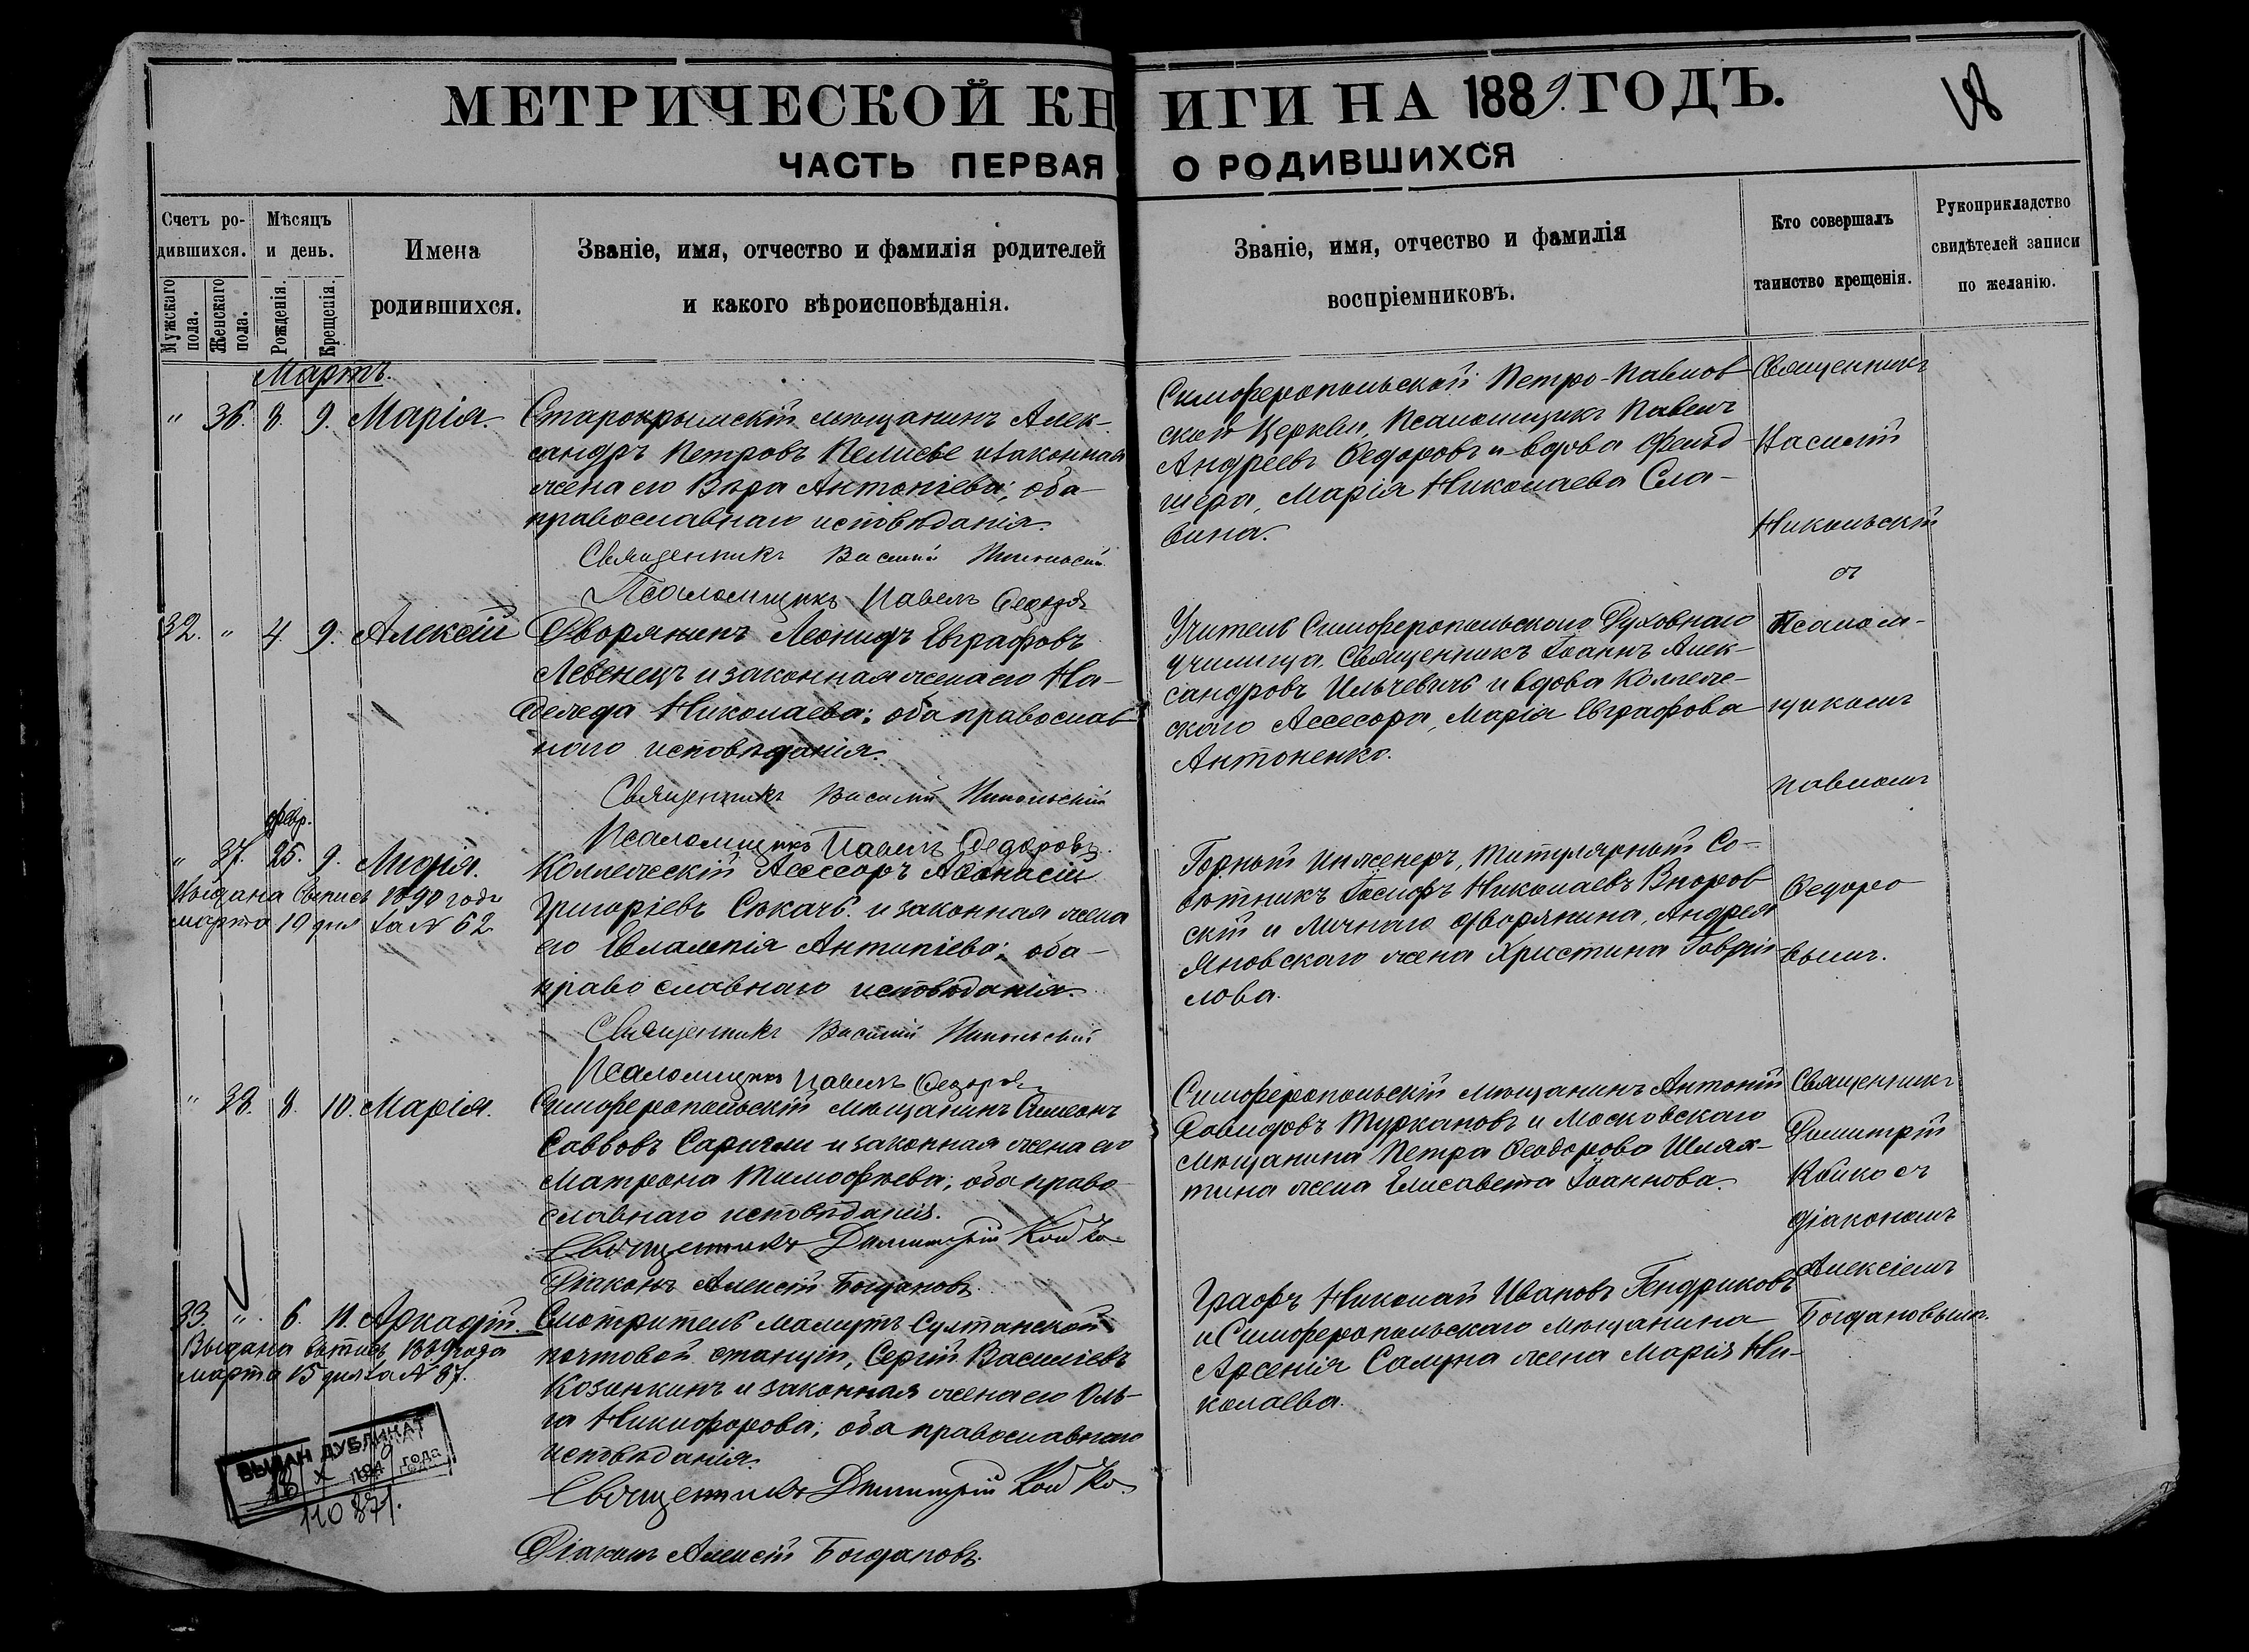 МЕТРИЧЕСКОЙ КНИГИ НА 1889. ГОДЪ.
18
ЧАСТЬ ПЕРВАЯ О РОДИВШИХСЯ
Счетъ ро-
дившихся.
Мужскаго пола.
Женскаго пола.
Мѣсяцъ
и день.
Рожденія.
Крещенія.
Имена
родившихся.
Званіе, имя, отчество и фамилія родителей
и какого вѣроисповѣданія.
Званіе, имя, отчество и фамилія
воспріемниковъ.
Кто совершалъ
таинство крещенія.
Рукоприкладство
свидѣтелей записи
по желанію.
Мартъ.
" 36. 8. 9. Марія.
Старокрымскій мѣщанинъ Алек-
сандръ Петровъ и законная
жена его Вѣра Антоніева; оба
православнаго исповѣданія.
Священникъ Василій Никольскій
Псаломщикъ Павелъ Ѳедоровъ
Симферопольской Петро-Павлов
ской Церкви, Псаломщикъ Павелъ
Андреевъ Ѳедоровъ и вдова фельд-
шера, Марія Николаева Сла-
вина.
Священникъ
Василій
Никольскій
съ
Псалом-
щикомъ
Павломъ
Ѳедоро
вымъ.
32. " 4. 9. Алексій
Дворянинъ Леонидъ Евграфовъ
Левенецъ и законная жена его На-
дежда Николаева; оба православ
наго исповѣданія.
Священникъ Василій Никольскій
Псаломщикъ Павелъ Ѳедоровъ.
Учитель Симферопольскаго Духовнаго
училища, Священникъ Іоаннъ Алек-
сандровъ Ильчевичъ и вдова Коллеж-
скаго Ассесора, Марія Евграфова
Антоненко.
февр.
" 37. 25. 9. Лидія.
Выдана выпись 1890 года
марта 19 дня за № 62
Коллежскій Ассесоръ Аѳанасій
Григоріевъ Сѣкачъ и законная жена
его Евлампія Антипіева; оба
православнаго исповѣданія.
Священникъ Василій Никольскій
Псаломщикъ Павелъ Ѳедоровъ
Горный инженеръ, Титулярный Со-
вѣтникъ Іосифъ Николаевъ
скій и личнаго дворянина, Андрея
Яновскаго жена Христина Гаврі-
лова.
" 38. 8. 10. Марія.
Симферопольскій мѣщанинъ Симеонъ
Саввовъ Саригли и законная жена его
Матрона Тимофѣева; оба право
славнаго исповѣданія.
Священникъ Димитрій Койко
Діаконъ Алексій Богдановъ.
Симферопольскій мѣщанинъ Антоній
Давидовъ Туркановъ и Московскаго
мѣщанина Петра Ѳеодорова Шлях-
тина жена Елисавета Іоаннова.
Священникъ
Димитрій
Койко съ
діакономъ
Алексіемъ
Богдановымъ.
33. " 6. 11. Аркадій.
Выдана выпись 1889 года
марта 15 дня за № 87.
Смотритель Мамутъ Султанской
почтовой станціи, Сергій Василіевъ
Козинкинъ и законная жена его Оль-
га Никифорова; оба православнаго
исповѣданія.
Священникъ Димитрій Койко.
Діаконъ Алексій Богдановъ.
Графъ Николай Ивановъ Гендриковъ
и Симферопольскаго мѣщанина
Арсенія Самуна жена Марія Ни-
колаева.
ВЫДАН ДУБЛИКАТ
X года
110871.